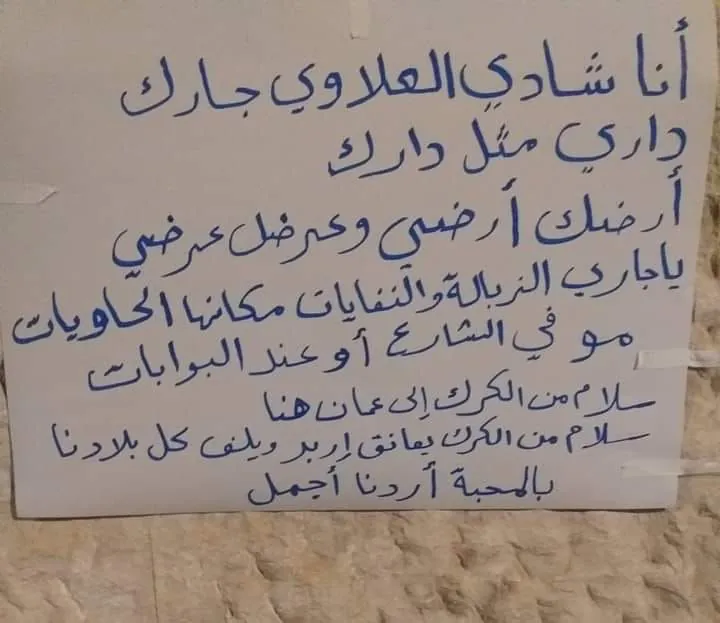 أنا شادي العلاوي جارك
داري مثل دارك
أرضك أرضي وعرضك عرضي
ياجاري الزبالة والنفايات مكانها الحاويات
مو في الشارع أو عند البوابات
سلام من الكرك إلى عمان هنا
سلام من الكرك يعانق إربد ويلف كل بلادنا
بالمحبة أردنا أجمل